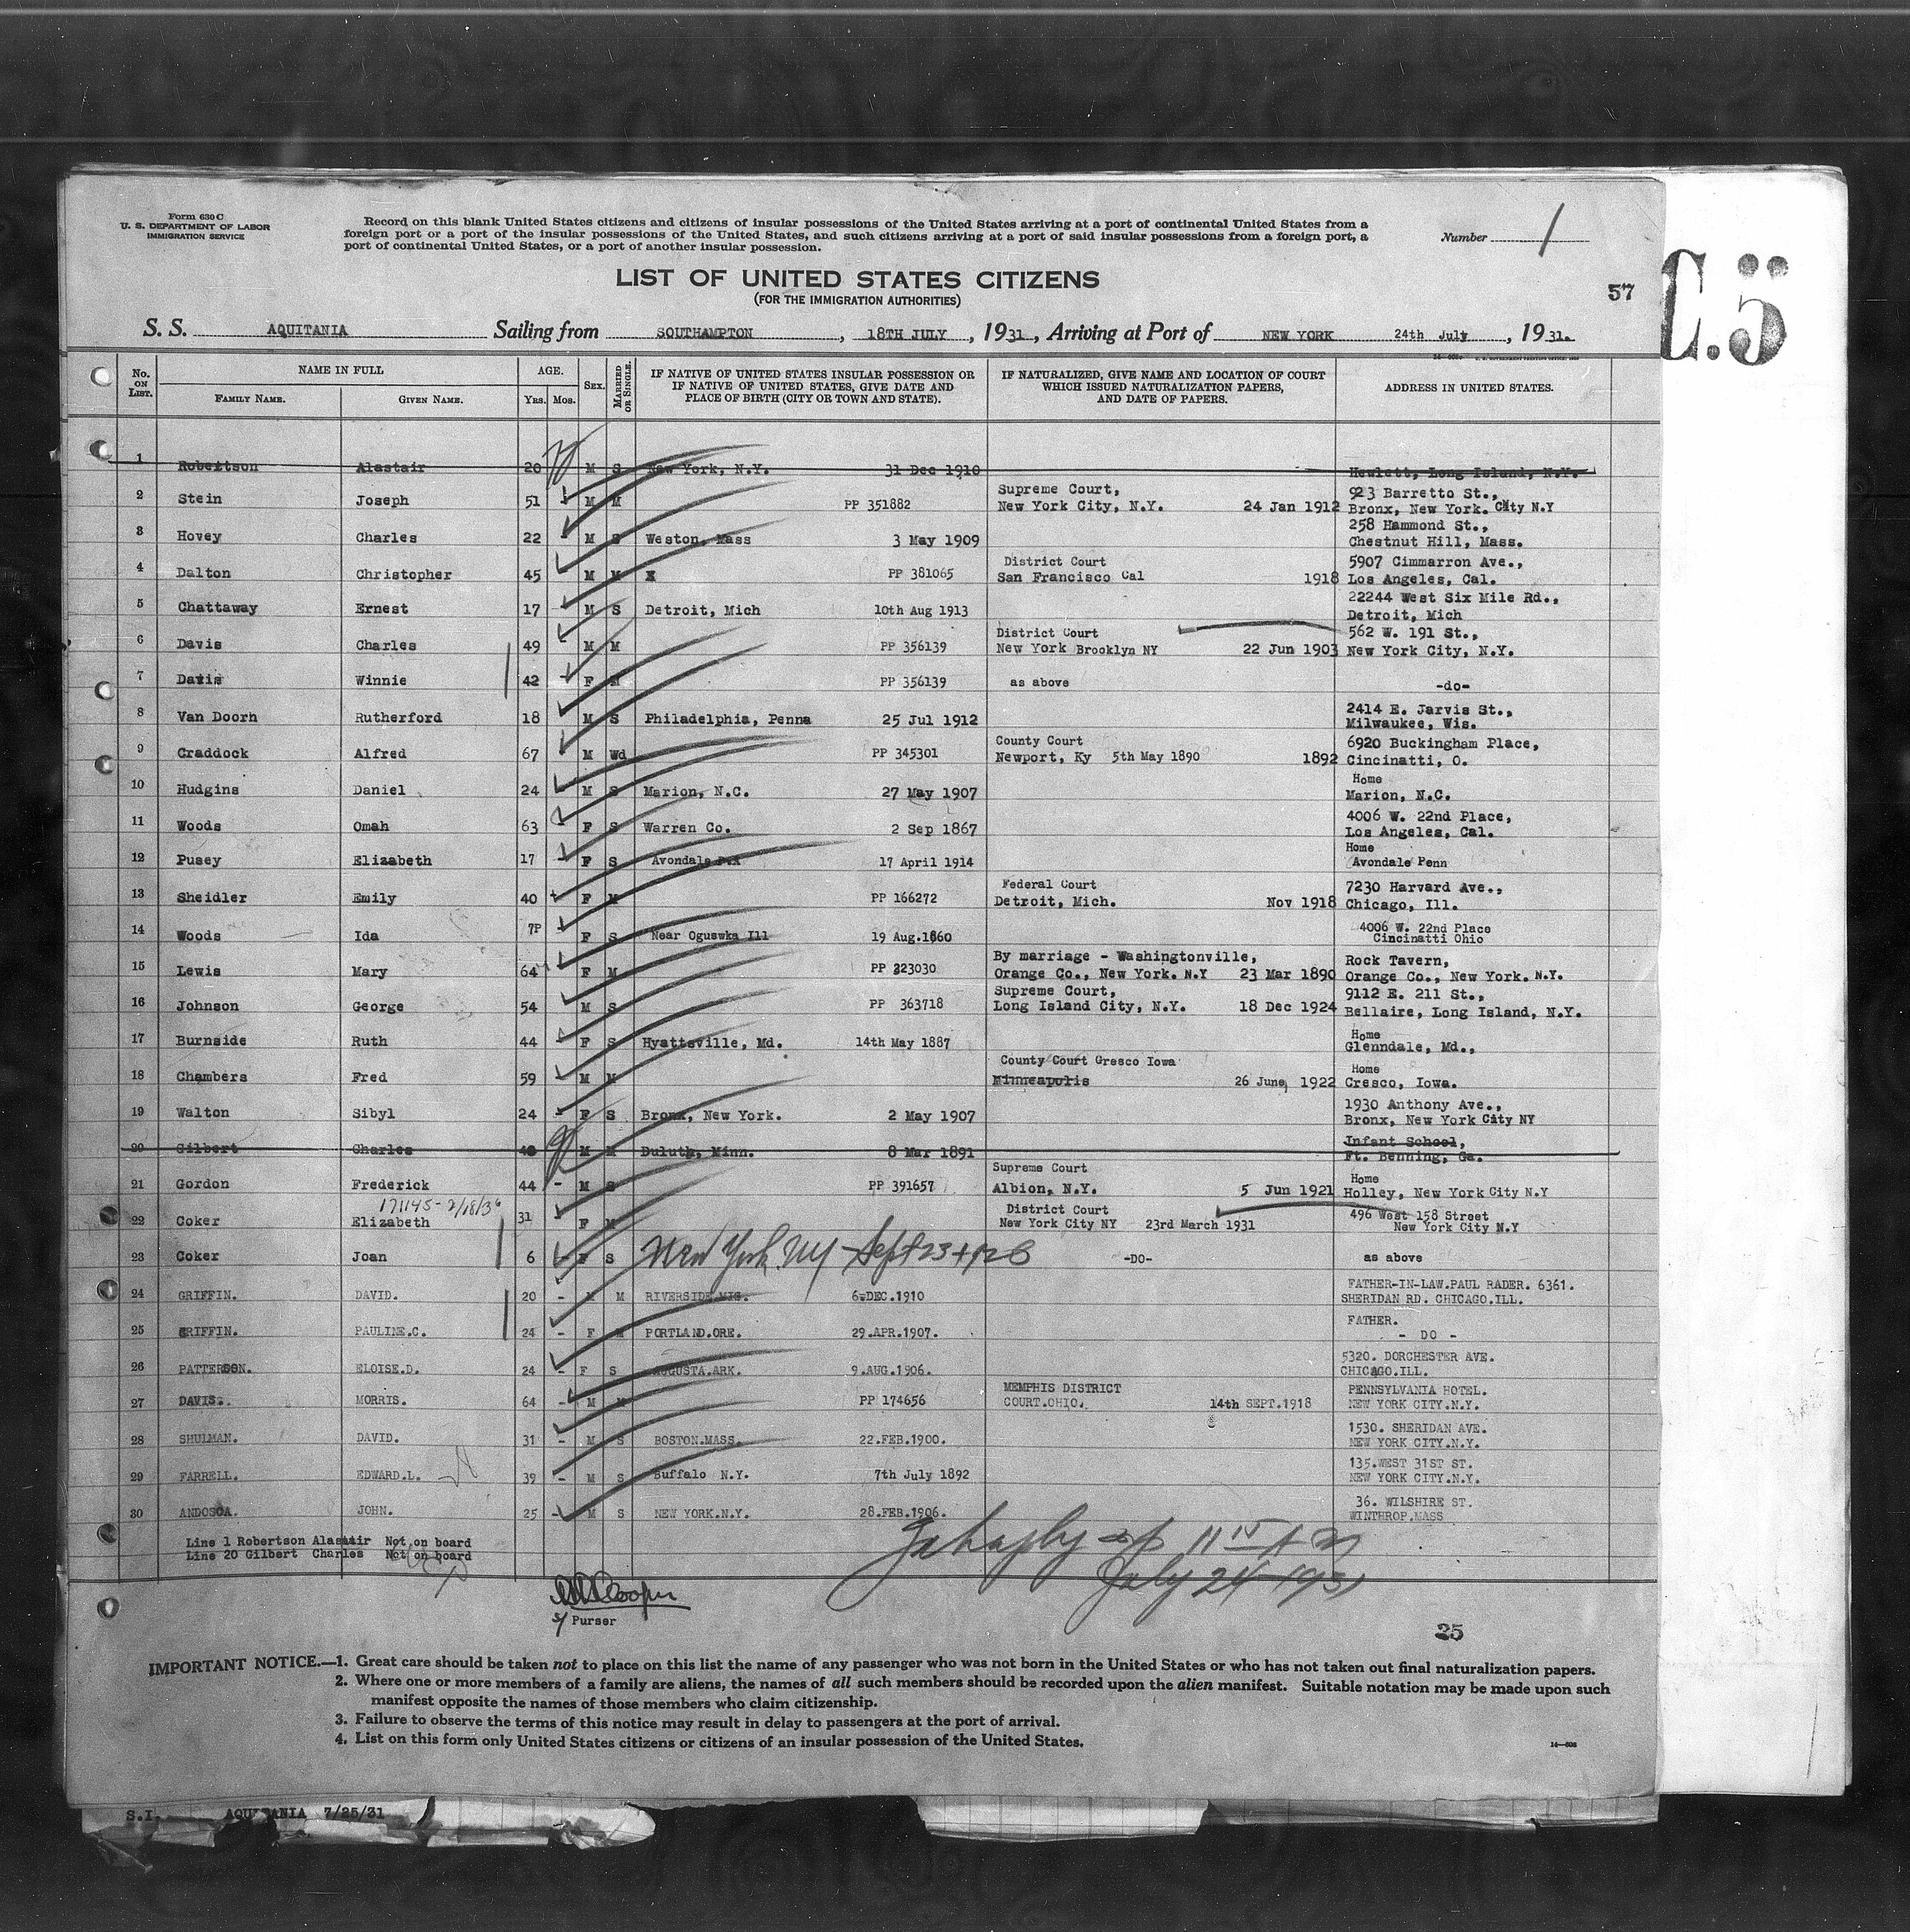 Form 630 C
U. S. DEPARTMENT OF LABOR
IMMIGRATION SERVICE
Record on this blank United States citizens and citizens of insular possessions of the United States arriving at a port of continental United States from a
foreign port or a port of the insular possessions of the United States, and such citizens arriving at a port of said insular possessions from a foreign port, a
port of continental United States, or a port of another insular possession.
Number 1
LIST OF UNITED STATES CITIZENS
(FOR THE IMMIGRATION AUTHORITIES)
57
C.5
S. S. AQUITANIA Sailing from SOUTHAMPTON, 18TH JULY, 1931, Arriving at Port of NEW YORK 24th July, 1931.
No. ON LIST. NAME IN FULL AGE. SEX. MARRIED OR SINGLE. IF NATIVE OF UNITED STATES INSULAR POSSESSION OR IF NATIVE OF UNITED STATES, GIVE DATE AND PLACE OF BIRTH (CITY OR TOWN AND STATE). IF NATURALIZED, GIVE NAME AND LOCATION OF COURT WHICH ISSUED NATURALIZATION PAPERS, AND DATE OF PAPERS. ADDRESS IN UNITED STATES.
FAMILY NAME. GIVEN NAME. Yrs. Mos.
1 Robertson Alastair 20 M S New York, N.Y. 31 Dec 1910 Hewlett, Long Island, N.Y.
2 Stein Joseph 51 M M PP 351882 Supreme Court, New York City, N.Y. 24 Jan 1912 923 Barretto St., Bronx, New York. City N.Y
3 Hovey Charles 22 M S Weston, Mass 3 May 1909 258 Hammond St., Chestnut Hill, Mass.
4 Dalton Christopher 45 M M X PP 381065 District Court San Francisco Cal 1918 5907 Cimmarron Ave., Los Angeles, Cal.
5 Chattaway Ernest 17 - M S Detroit, Mich 10th Aug 1913 22244 West Six Mile Rd., Detroit, Mich
6 Davis Charles 49 M M PP 356139 District Court New York Brooklyn NY 22 Jun 1903 562 W. 191 St., New York City, N.Y.
7 Davis Winnie 42 F M PP 356139 as above -do-
8 Van Doorh Rutherford 18 M S Philadelphia, Penna 25 Jul 1912 2414 E. Jarvis St., Milwaukee, Wis.
9 Craddock Alfred 67 M Wd PP 345301 County Court Newport, Ky 5th May 1890 1892 6920 Buckingham Place, Cincinatti, O.
10 Hudgins Daniel 24 M S Marion, N.C. 27 May 1907 Home Marion, N.C.
11 Woods Omah 63 F S Warren Co. 2 Sep 1867 4006 W. 22nd Place, Los Angeles, Cal.
12 Pusey Elizabeth 17 - F S Avondale 17 April 1914 Home Avondale Penn
13 Sheidler Emily 40 F M PP 166272 Federal Court Detroit, Mich. Nov 1918 7230 Harvard Ave., Chicago, Ill.
14 Woods Ida F S Near Oguswka Ill 19 Aug.1860 4006 W. 22nd Place Cincinatti Ohio
15 Lewis Mary 64 F M PP 323030 By marriage - Washingtonville, Orange Co., New York. N.Y 23 Mar 1890 Rock Tavern, Orange Co., New York. N.Y.
16 Johnson George 54 M S PP 363718 Supreme Court, Long Island City, N.Y. 18 Dec 1924 9112 E. 211 St., Bellaire, Long Island, N.Y.
17 Burnside Ruth 44 F S Hyattsville, Md. 14th May 1887 Home Glenndale, Md.,
18 Chambers Fred 59 M M County Court Cresco Iowa Minneapolis 26 June, 1922 Home Cresco, Iowa.
19 Walton Sibyl 24 - F S Bronx, New York. 2 May 1907 1930 Anthony Ave., Bronx, New York City NY
20 Gilbert Charles 40 M M Duluth, Minn. 8 Mar 1891 Infant School, Ft. Benning, Ga.
21 Gordon Frederick 44 - M S PP 391657 Supreme Court Albion, N.Y. 5 Jun 1921 Home Holley, New York City N.Y
171145-2/18/36
22 Coker Elizabeth 31 F M District Court New York City NY 23rd March 1931 496 West 158 Street New York City N.Y
23 Coker Joan 6 - F S New York NY - Sept 23 -DO- as above
24 GRIFFIN. DAVID. 20 - M M RIVERSIDE. 6-DEC.1910 FATHER-IN-LAW.PAUL RADER. 6361. SHERIDAN RD. CHICAGO.ILL.
25 GRIFFIN. PAULINE.C. 24 - F M PORTLAND.ORE. 29.APR.1907. FATHER. - DO -
26 PATTERSON. ELOISE.D. 24 - F S AUGUSTA.ARK. 9.AUG.1906. 5320. DORCHESTER AVE. CHICAGO.ILL.
27 DAVIS. MORRIS. 64 - M M PP 174656 MEMPHIS DISTRICT COURT.OHIO. 14th SEPT.1918 PENNSYLVANIA HOTEL. NEW YORK CITY.N.Y.
28 SHULMAN. DAVID. 31 - M S BOSTON.MASS. 22.FEB.1900. 1530. SHERIDAN AVE. NEW YORK CITY.N.Y.
29 FARRELL. EDWARD.L. 39 - M S Buffalo N.Y. 7th July 1892 135.WEST 31ST ST. NEW YORK CITY.N.Y.
30 ANDOSCA. JOHN. 25 - M S NEW YORK.N.Y. 28.FEB.1906. 36. WILSHIRE ST. WINTHROP.MASS
Line 1 Robertson Alastair Not on board
Line 20 Gilbert Charles Not on board
11 15 AM
July 24 1931
Cooper
Purser
25
IMPORTANT NOTICE.—1. Great care should be taken not to place on this list the name of any passenger who was not born in the United States or who has not taken out final naturalization papers.
2. Where one or more members of a family are aliens, the names of all such members should be recorded upon the alien manifest. Suitable notation may be made upon such
manifest opposite the names of those members who claim citizenship.
3. Failure to observe the terms of this notice may result in delay to passengers at the port of arrival.
4. List on this form only United States citizens or citizens of an insular possession of the United States.
S.I. AQUITANIA 7/25/31